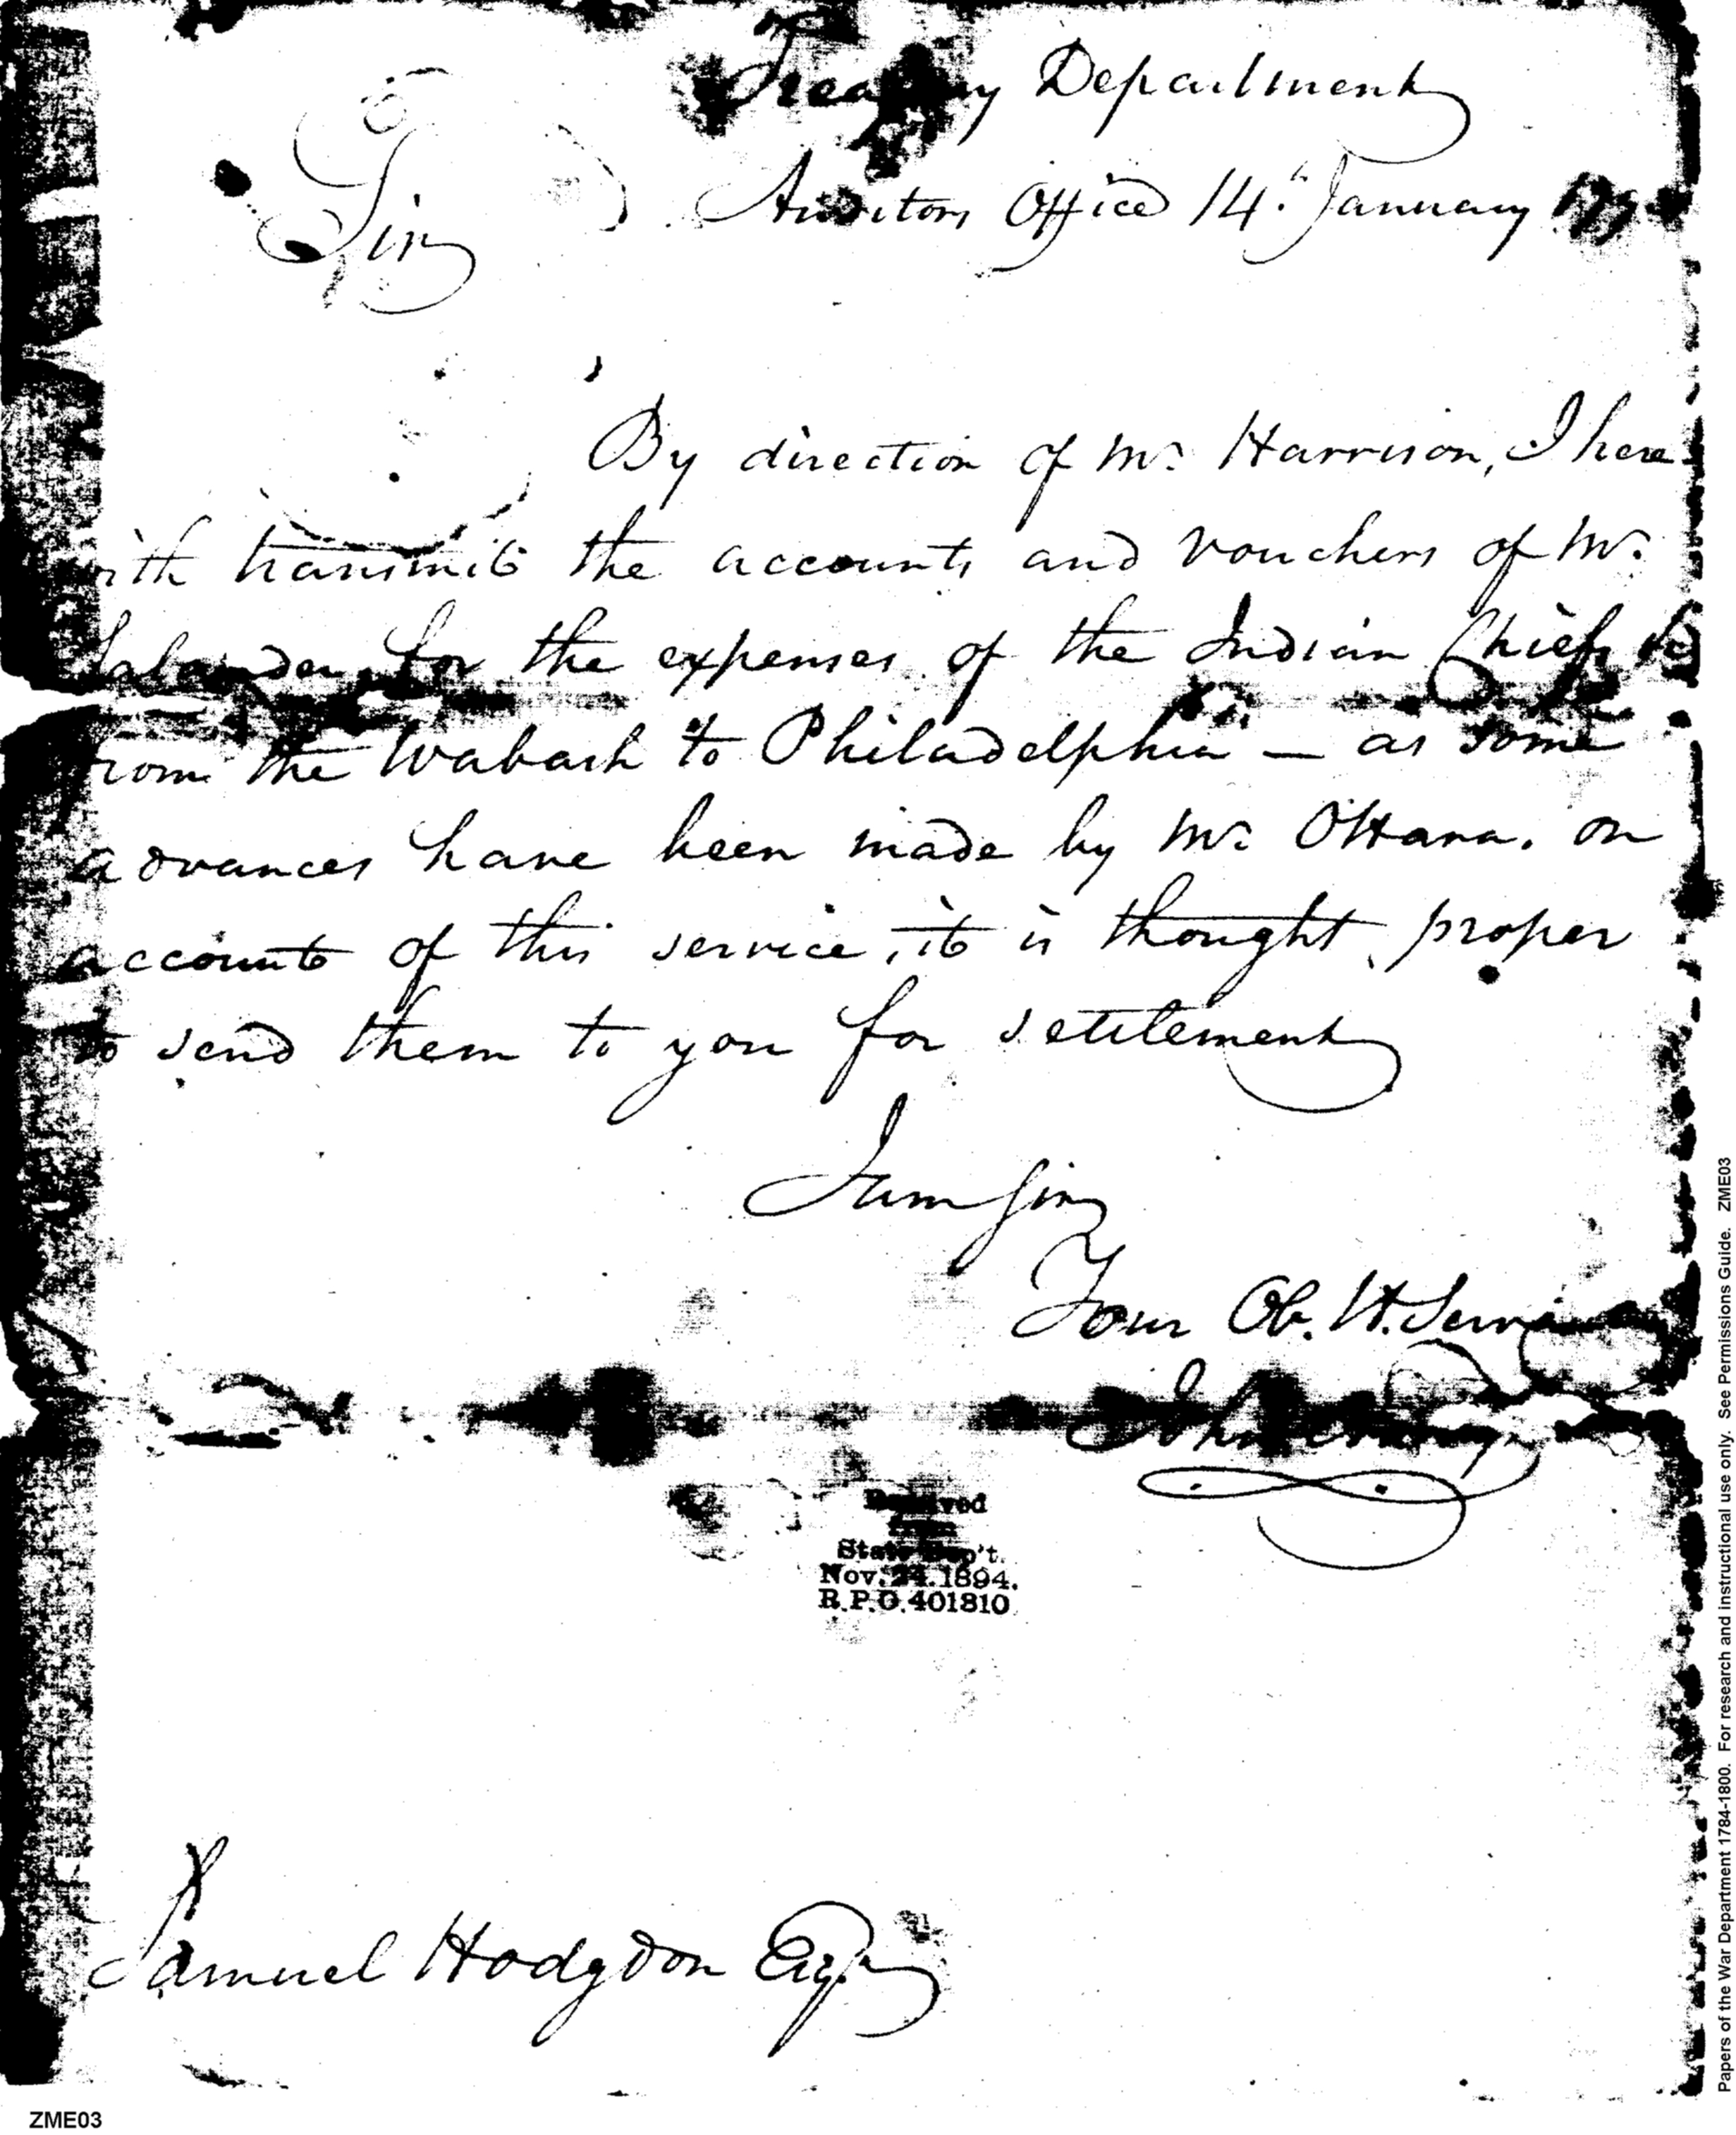 Treasury Department
Auditors Office 14th January
Sir
By direction of Mr. Harrison, I here
with transmit the accounts and vouchers of Mr.
for the expenses of the Indian Chiefs &c
from the Wabash to Philadelphia — as some
advances have been made by Mr. OHara. on
account of this service, it is thought proper
to send them to you for settlement
I am Sir
Your Ob. H. Servant
John
Received
from
State Dep't.
Nov. 24. 1894.
R.P.O. 401810
Samuel Hodgdon Esqr
ZME03
Papers of the War Department 1784-1800. For research and instructional use only. See Permissions Guide. ZME03